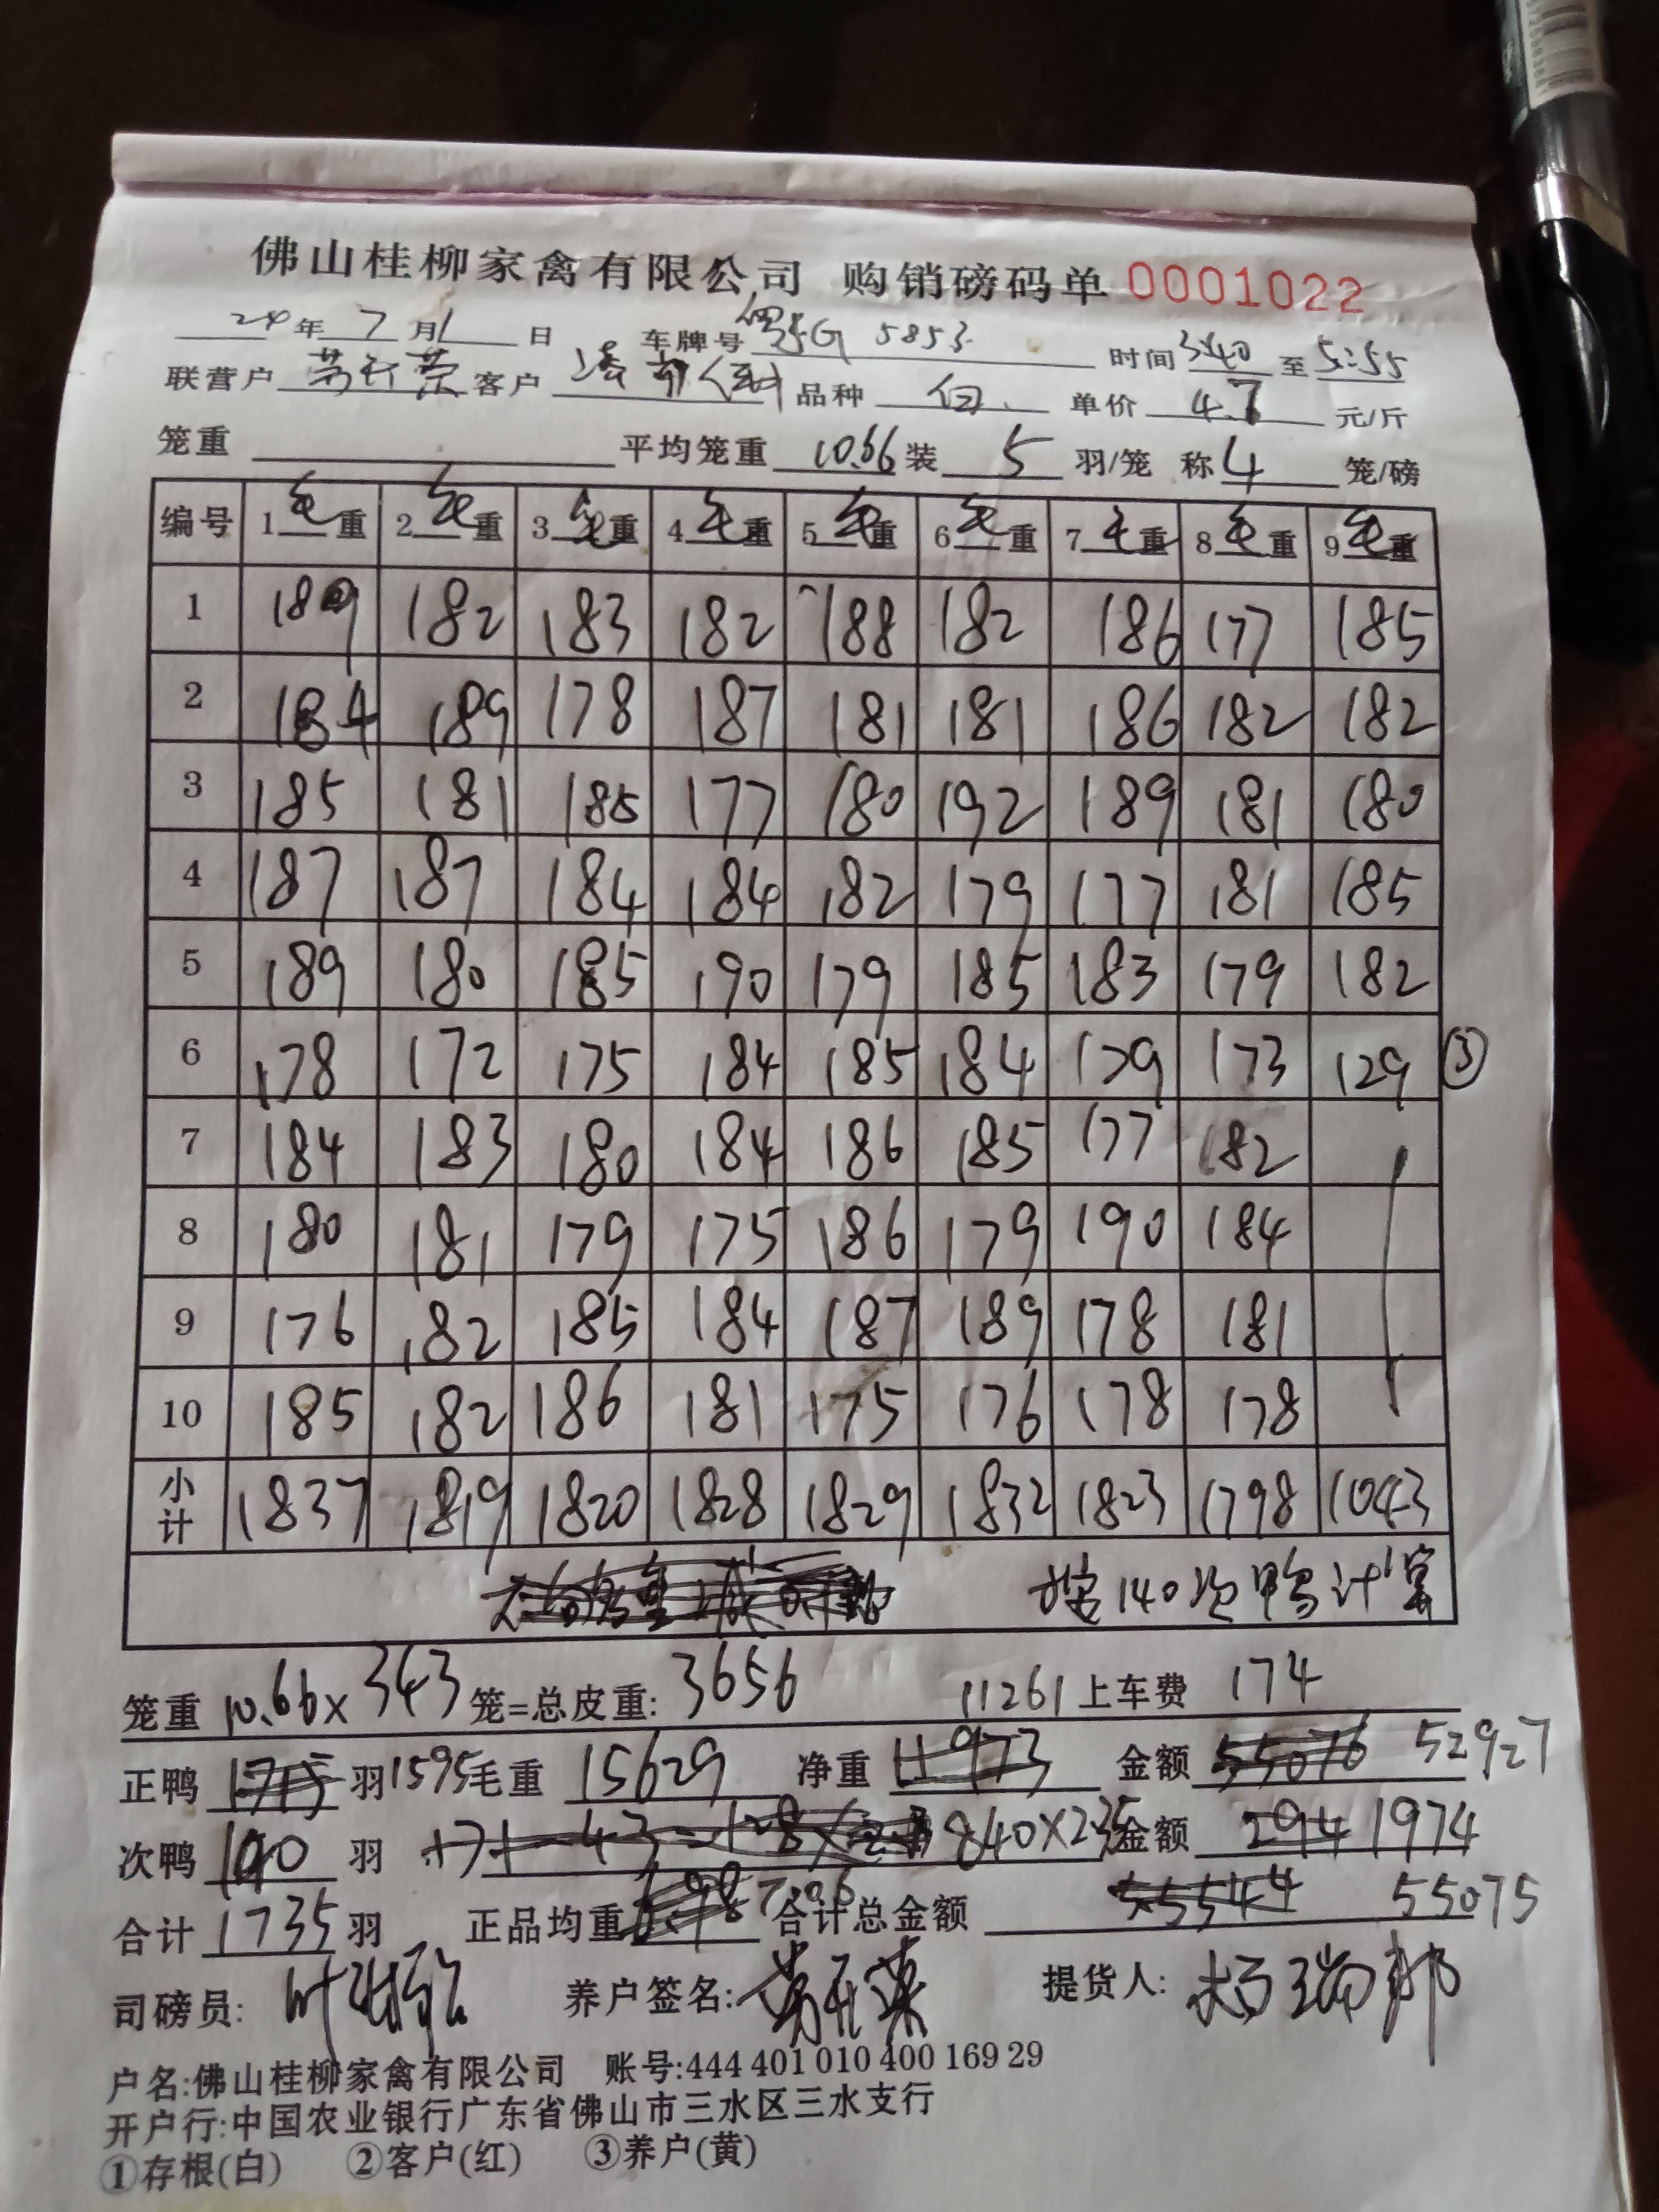 佛山桂柳家禽有限公司 购销磅码单 0001022
24年 7月1日 车牌号 粤G 5853 时间 3:40 至 5:55
联营户 客户 品种 白 单价 4.7 元/斤
笼重 平均笼重 10.66 装 5 羽/笼 称 4 笼/磅
编号 1毛重 2毛重 3毛重 4毛重 5毛重 6毛重 7毛重 8毛重 9毛重
1 189 182 183 182 188 182 186 177 185
2 184 189 178 187 181 181 186 182 182
3 185 181 185 177 180 192 189 181 180
4 187 187 184 184 182 179 177 181 185
5 189 180 185 190 179 185 183 179 182
6 178 172 175 184 185 184 179 173 129 ③
7 184 183 180 184 186 185 177 182
8 180 181 179 175 186 179 190 184
9 176 182 185 184 187 189 178 181
10 185 182 186 181 175 176 178 178
小计 1837 1819 1820 1828 1829 1832 1823 1798 1043
按140次鸭计算
笼重 10.66×343 笼=总皮重: 3656 11261 上车费 174
正鸭 1715 羽 1595 毛重 15629 净重 11973 金额 55076 52927
次鸭 140 羽 171-43=128× 840×2.35 金额 294 1974
合计 1735 羽 正品均重 6.98 7.06 合计总金额 55544 55075
司磅员: 养户签名: 提货人:
户名:佛山桂柳家禽有限公司 账号:444 401 010 400 169 29
开户行:中国农业银行广东省佛山市三水区三水支行
①存根(白) ②客户(红) ③养户(黄)